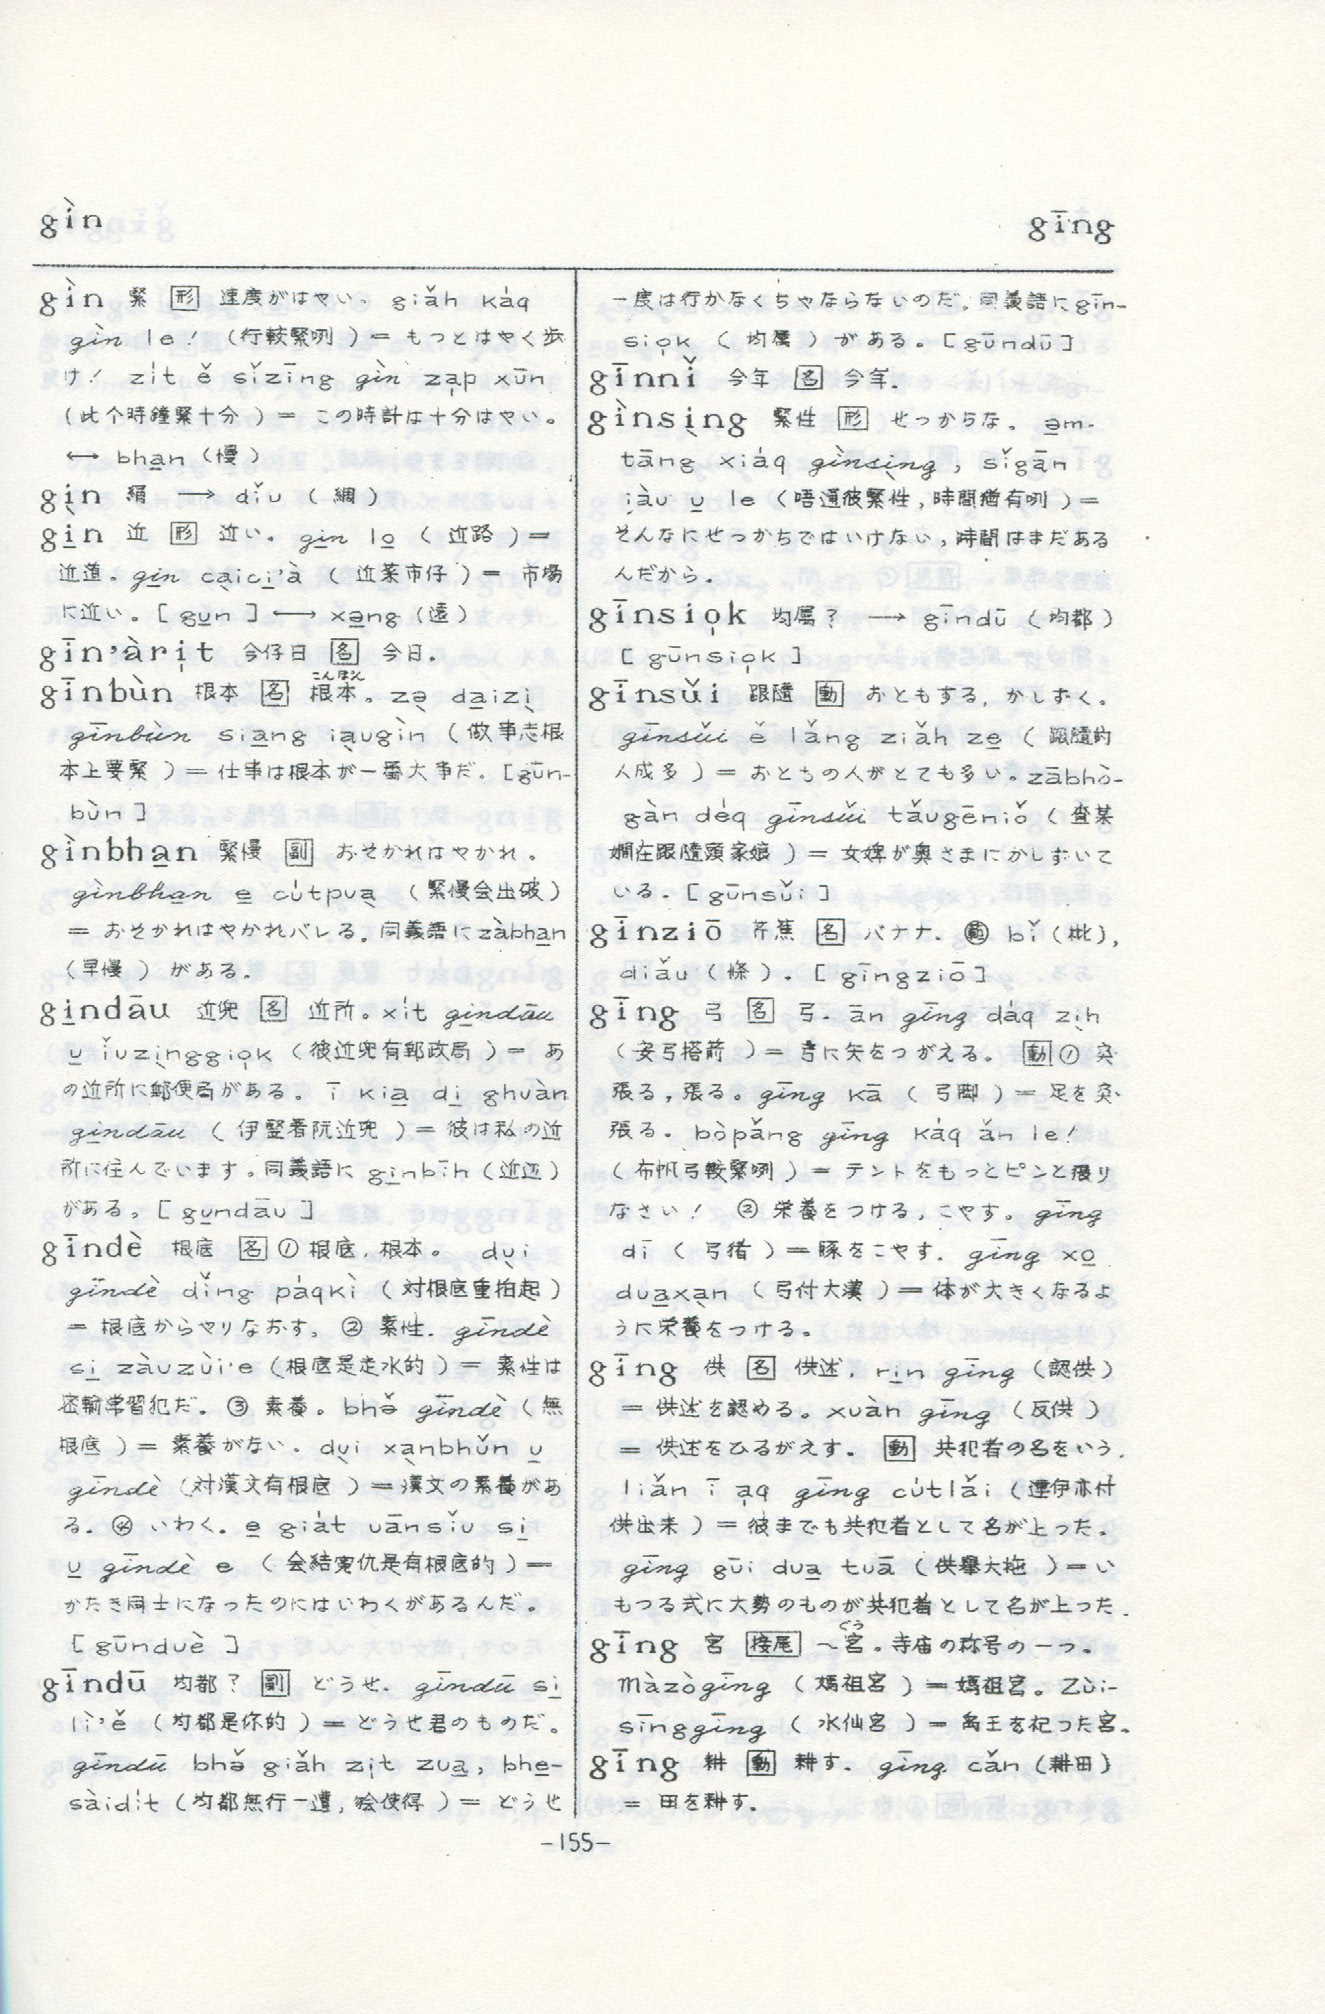 gìn
gīng
gìn 緊 [形] 速度がはやい。giǎh káq
gìn le! (行較緊咧)= もっとはやく歩
け! zi̍t ě sǐzīng gìn za̩p xūn
(此个時鐘緊十分)= この時計は十分はやい。
⟷ bha̲n (慢)
gi̩n 絹 ⟹ diǔ (綢)
gi̲n 近 [形] 近い。gi̲n lo̲ (近路)=
近道 gi̲n ca̩ici̲'à (近菜市仔)= 市場
に近い。[gu̲n] ⟷ xa̲ng (遠)
gīn'àri̩t 今仔日 [名] 今日.
gīnbùn 根本 [名] 根本。zə̩ da̲izì̩
gīnbùn sia̲ng ia̩ugìn (做事志根
本上要緊)= 仕事は根本が一番大事だ。[gūn-
bùn]
gìnbha̲n 緊慢 [副] おそかれはやかれ。
gìnbha̲n e̲ cu̍tpua̩ (緊慢会出破)
= おそかれはやかれバレる。同義語に zàbha̲n
(早慢) がある.
gi̲ndāu 近兜 [名] 近所。xi̍t gi̲ndāu
u̲ ǐuzi̩nggio̩k (彼近兜有郵政局)= あ
の近所に郵便局がある。ī kia̲ di̲ ghuàn
gi̲ndāu (伊竪着阮近兜)= 彼は私の近
所に住んでいます。同義語に gi̲nbīh (近辺)
がある。[gu̲ndāu]
gīndè 根底 [名] ① 根底, 根本。du̩i
gīndè dǐng páqkì (対根底重拍起)
= 根底からやりなおす。② 素性. gīndè
si̲ zàuzùi·e (根底是走水的)= 素性は
密輸常習犯だ。③ 素養。bhə̌ gīndè (無
根底)= 素養がない. du̩i xa̩nbhǔn u̲
gīndè (対漢文有根底)= 漢文の素養があ
る. ④ いわく. e̲ giát uānsǐu si̲
u̲ gīndè e (会結寃仇是有根底的)=
かたき同士になったのにはいわくがあるんだ。
[gūnduè]
gīndū 均都? [副] どうせ. gīndū si̲
lì'ě (均都是你的)= どうせ君のものだ。
gīndū bhə̌ giǎh zi̩t zua̲, bhe̲-
sàidi̍t (均都無行一遭, 𣍐使得)= どうせ
一度は行かなくちゃならないのだ. 同義語に gīn-
sio̩k (均属) がある。[gūndū]
gīnnǐ 今年 [名] 今年.
gìnsi̩ng 緊性 [形] せっかちな。ə̲m-
tāng xiáq gìnsi̩ng, sǐgān
iàu u̲ le (唔通彼緊性, 時間猶有咧)=
そんなにせっかちではいけない, 時間はまだある
んだから。
gīnsio̩k 均属? ⟶ gīndū (均都)
[gūnsio̩k]
gīnsǔi 跟隨 [動] おともする, かしずく。
gīnsǔi ě lǎng ziǎh ze̲ (跟隨的
人成多)= おともの人がとても多い。zābhò-
gàn déq gīnsǔi tǎugēniǒ (査某
嫺在跟隨頭家娘)= 女婢が奥さまにかしずいて
いる. [gūnsǔi]
gīnziō 芹蕉 [名] バナナ. 量 bǐ (枇),
diǎu (條). [gīngziō]
gīng 弓 [名] 弓. ān gīng dáq zi̩h
(安弓搭箭)= 弓に矢をつがえる。[動] ① 突
張る, 張る。gīng kā (弓脚)= 足を突
張る. bòpǎng gīng káq ǎn le!
(布帆弓較緊咧)= テントをもっとピンと張り
なさい! ② 栄養をつける, こやす. gīng
dī (弓猪)= 豚をこやす. gīng xo̲
dua̲xa̩n (弓付大漢)= 体が大きくなるよ
うに栄養をつける。
gīng 供 [名] 供述. ri̲n gīng (認供)
= 供述を認める. xuàn gīng (反供)
= 供述をひるがえす。[動] 共犯者の名をいう.
liǎn ī a̩q gīng cu̍tlǎi (連伊亦付
供出来)= 彼までも共犯者として名が上った。
gīng gūi dua̲ tuā (供舉大拖)= い
もづる式に大勢のものが共犯者として名が上った.
gīng 宮 [接尾] ~宮。寺廟の称号の一つ。
Màzògīng (媽祖宮)= 媽祖宮。Zùi-
sīnggīng (水仙宮)= 禹王を祀った宮。
gīng 耕 [動] 耕す. gīng cǎn (耕田)
= 田を耕す.
-155-